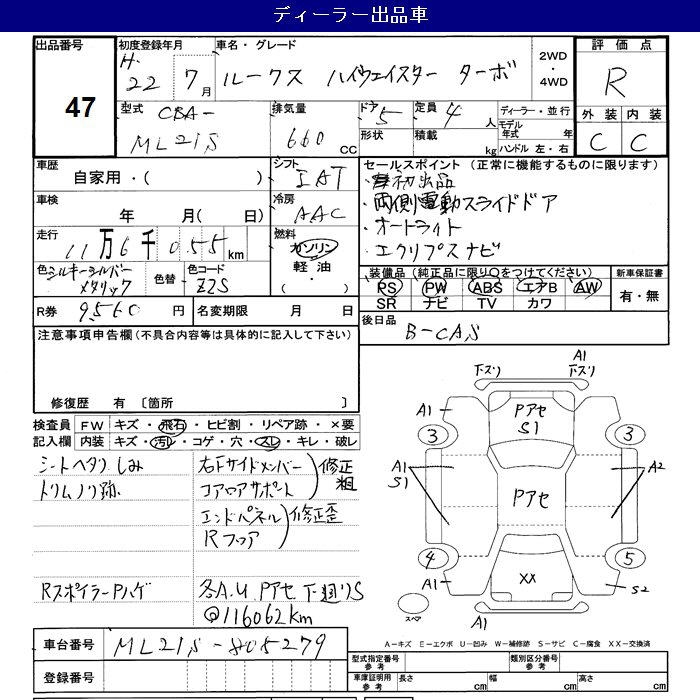 ディーラー出品車
出品番号 47
初度登録年月 H. 22年 7月
車名・グレード ルークス ハイウェイスター ターボ
2WD・4WD
評価点 R
外装 C 内装 C
型式 CBA- ML21S
排気量 660 CC
ドア 5 形状
定員 4人 積載 kg
ディーラー・並行
モデル年式 年
ハンドル 左・右
車歴 自家用・( )
シフト IAT
セールスポイント (正常に機能するものに限ります)
・初出品
・両側電動スライドドア
・オートライト
・エクリプスナビ
車検 年 月( 日)
冷房 AAC
走行 11万6千055km
燃料 ガソリン 軽油・( )
色 シルキーシルバーメタリック
色替
色コード Z2S
装備品 (純正品に限り○をつけてください)
PS PW ABS エアB AW
SR ナビ TV カワ
新車保証書 有・無
R券 9,560円
名変期限 月 日
後日品 B-CAS
注意事項申告欄 (不具合内容等は具体的に記入して下さい)
修復歴 有 〔箇所 〕
検査員 FW キズ・飛石・ヒビ割・リペア跡・×要
記入欄 内装 キズ・汚レ・コゲ・穴・スレ・キレ・破レ
シートヘタリ しみ
トリムノリ跡
右フサイドメンバー
コアロアサポート 修正粗
エンドパネル
Rフロア 修正歪
RスポイラーPハゲ
各A.U Pアセ 下廻りS
@116062km
下スリ
A1 下スリ
A1 Pアセ S1
3 3
A1 S1 Pアセ A2
4 5
A1 XX S2
スペア A1
A-キズ E-エクボ U-凹み W-補修跡 S-サビ C-腐食 XX-交換済
車台番号 ML21S-805279
登録番号
型式指定番号 参考
類別区分番号 参考
車庫証明用 参考 長さ cm 幅 cm 高さ cm